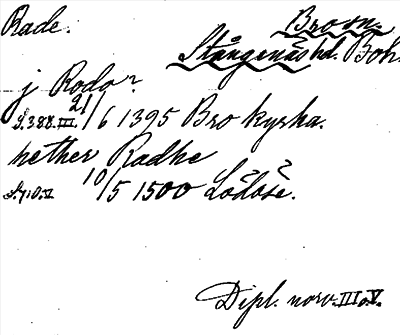 Rade. Brosn.
Stångenäs hd. Boh.
j Rodor
S. 388. III. 21/6 1395 Bro kyrka.
nether Radhe
S. 710. V 10/5 1500 Lödöse.
Dipl. norv. III o. V.